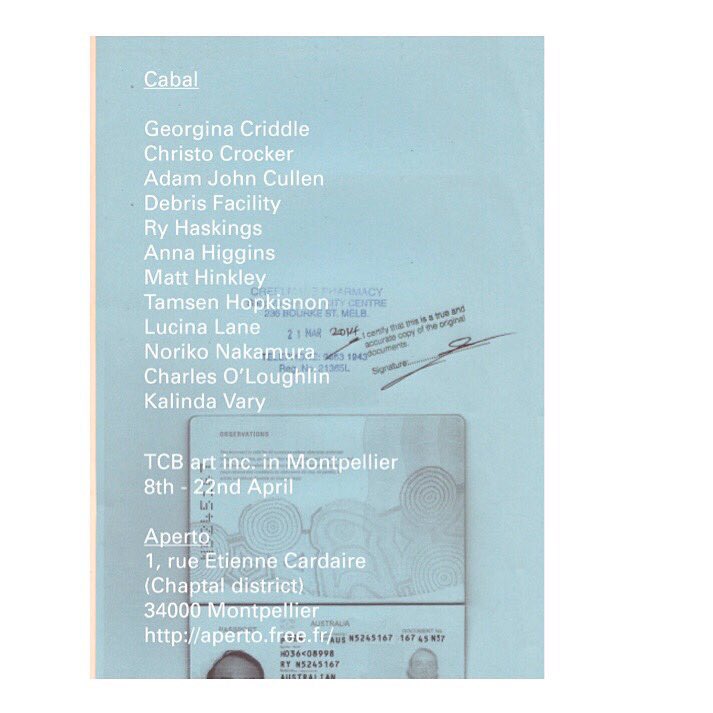 Cabal
Georgina Criddle
Christo Crocker
Adam John Cullen
Debris Facility
Ry Haskings
Anna Higgins
Matt Hinkley
Tamsen Hopkisnon
Lucina Lane
Noriko Nakamura
Charles O'Loughlin
Kalinda Vary
PHARMACY
CENTRE
236 BOURKE ST. MELB.
21 MAR 2014
Reg. No. 21365L
I certify that this is a true and
accurate copy of the original
documents.
Signature:
OBSERVATIONS
TCB art inc. in Montpellier
8th - 22nd April
Aperto
1, rue Etienne Cardaire
(Chaptal district)
34000 Montpellier
http://aperto.free.fr/
PASSPORT
AUSTRALIA
DOCUMENT No.
AUS N5245167
H036<08998
RY N5245167
AUSTRALIAN